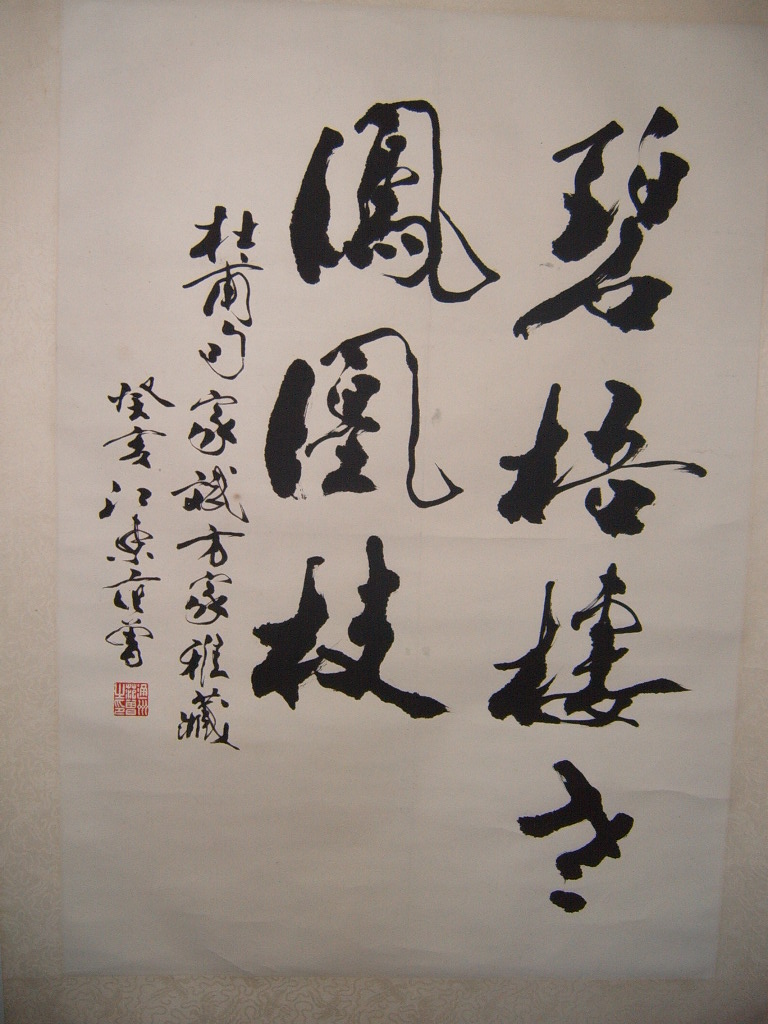 碧梧棲老
鳳凰枝
杜甫句家誠方家雅藏
癸亥江東范曾